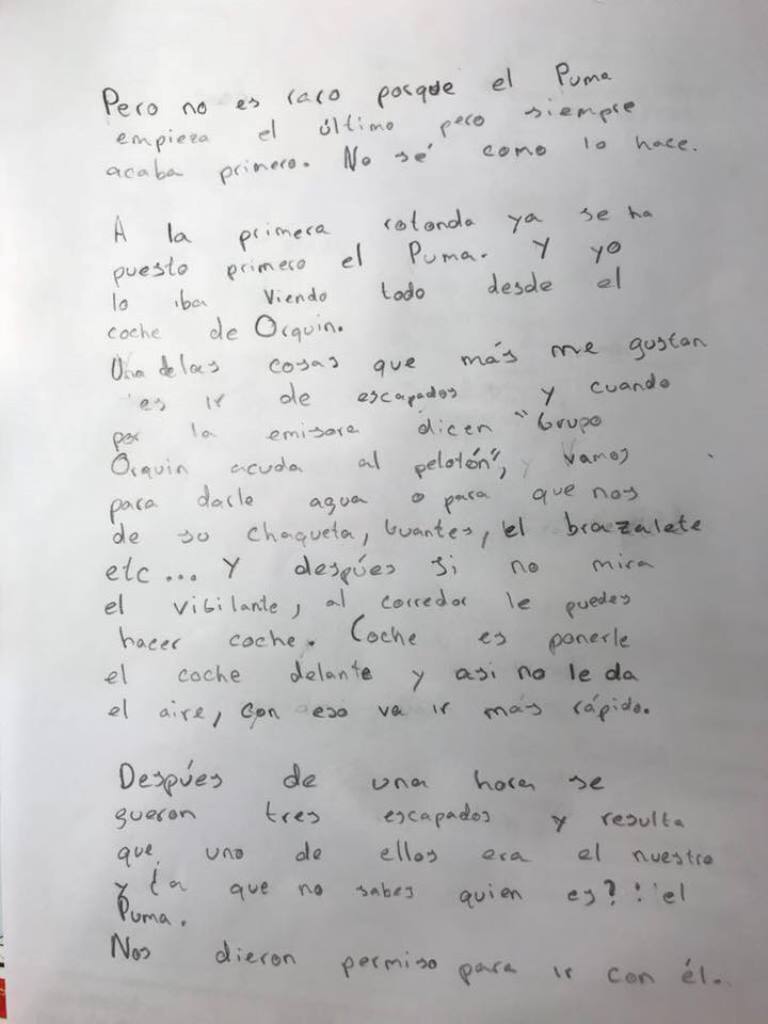 Pero no es raro porque el Puma
empieza el último pero siempre
acaba primero. No sé como lo hace.
A la primera rotonda ya se ha
puesto primero el Puma. Y yo
lo iba viendo todo desde el
coche de Orquin.
Una delas cosas que más me gustan
es ir de escapados y cuando
por la emisora dicen "Grupo
Orquin acuda al pelotón", vamos
para darle agua o para que nos
de su chaqueta, Guantes, el brazalete
etc... Y despúes si no mira
el vigilante, al corredor le puedes
hacer coche. Coche es ponerle
el coche delante y asi no le da
el aire, con eso va ir más rápido.
Despúes de una hora se
gueron tres escapados y resulta
que uno de ellos era el nuestro
y ta que no sabes quien es? ! el
Puma.
Nos dieron permiso para ir con él.